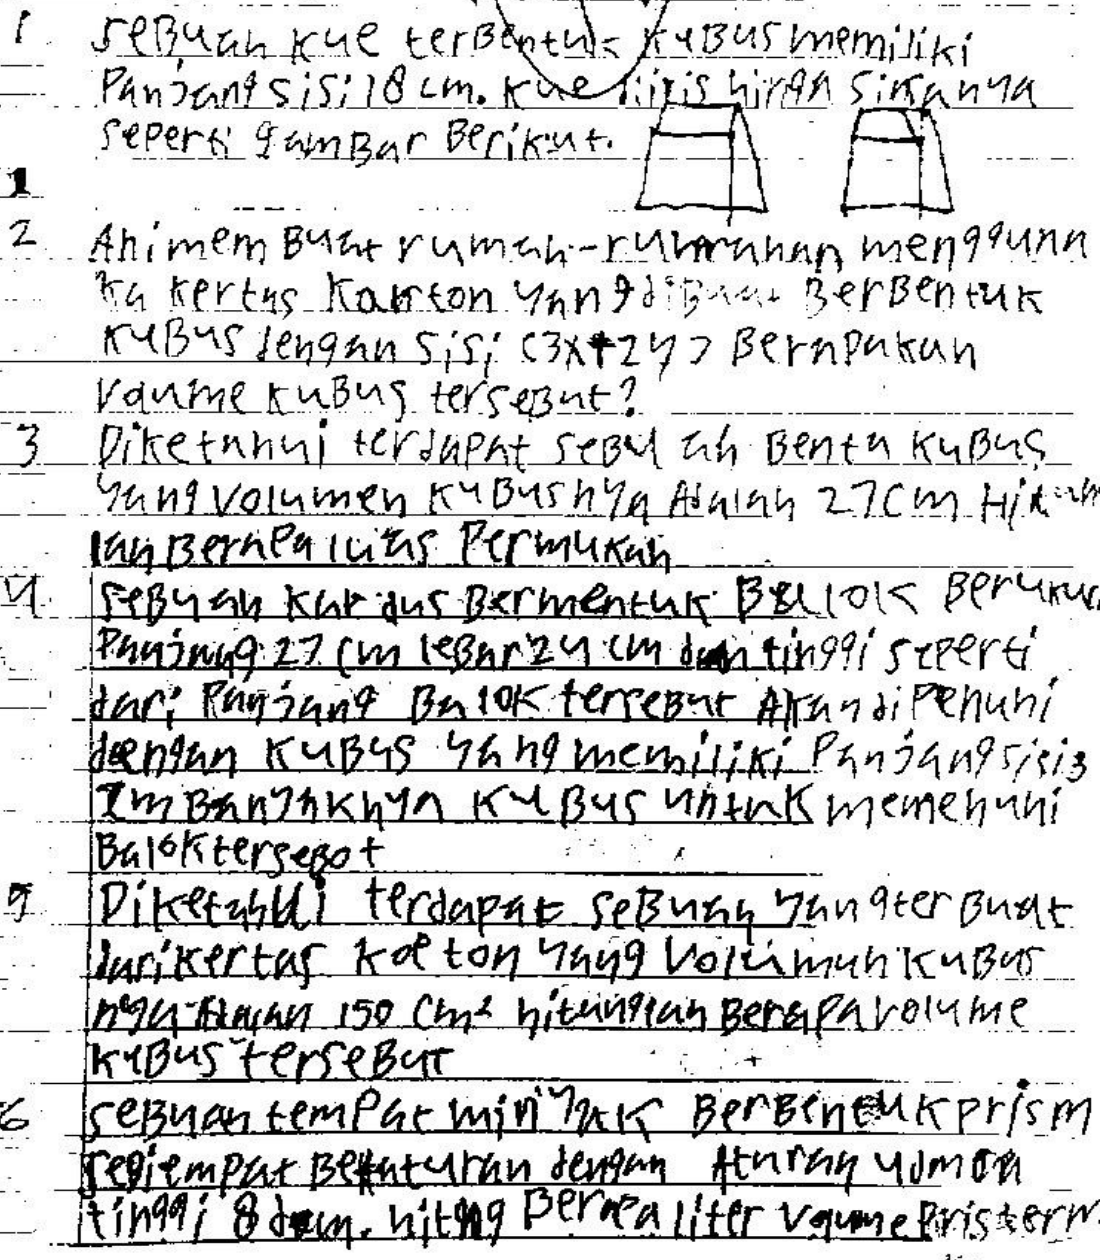 1 Sebuah kue terbentuk kubus memiliki
Panjang sisi 18 cm. kue diiris hinga sisanya
seperti gambar Berikut.
1
2 Ani mem Buat rumah-rumahan menggunn
ka kertas Karton yang diBuat BerBentuk
kuBus dengan sisi (3x+2y) Berapakah
Vaume kuBus terseBut?
3 Diketahui terdapat sebu ah Bentu KuBus
yang Volumen KuBusnya Adalah 27 Cm Hitung
lah Berapa luas Permukah
4 SeBuah kardus Bermentuk Balok Berukur
Panjang 27 cm leBar 24 cm dan tinggi seperti
dari Panjang Balok terseBut Akan di Penuhi
dengan KuBus yang memiliki Panjang sisi 3
Banyaknya KuBus untuk memenuhi
Balok tersebot
5 Diketahui terdapat SeBuah yang ter Buat
dari kertas Kaeton yang Volumuh KuBus
nya Adalah 150 Cm² hitunglah Berapa Volume
KuBus terseBut
6 SeBuah temPat minyak BerBentuk prism
segiempat Beraturan dengan
tinggi 8 hitng Berapa liter Vaume